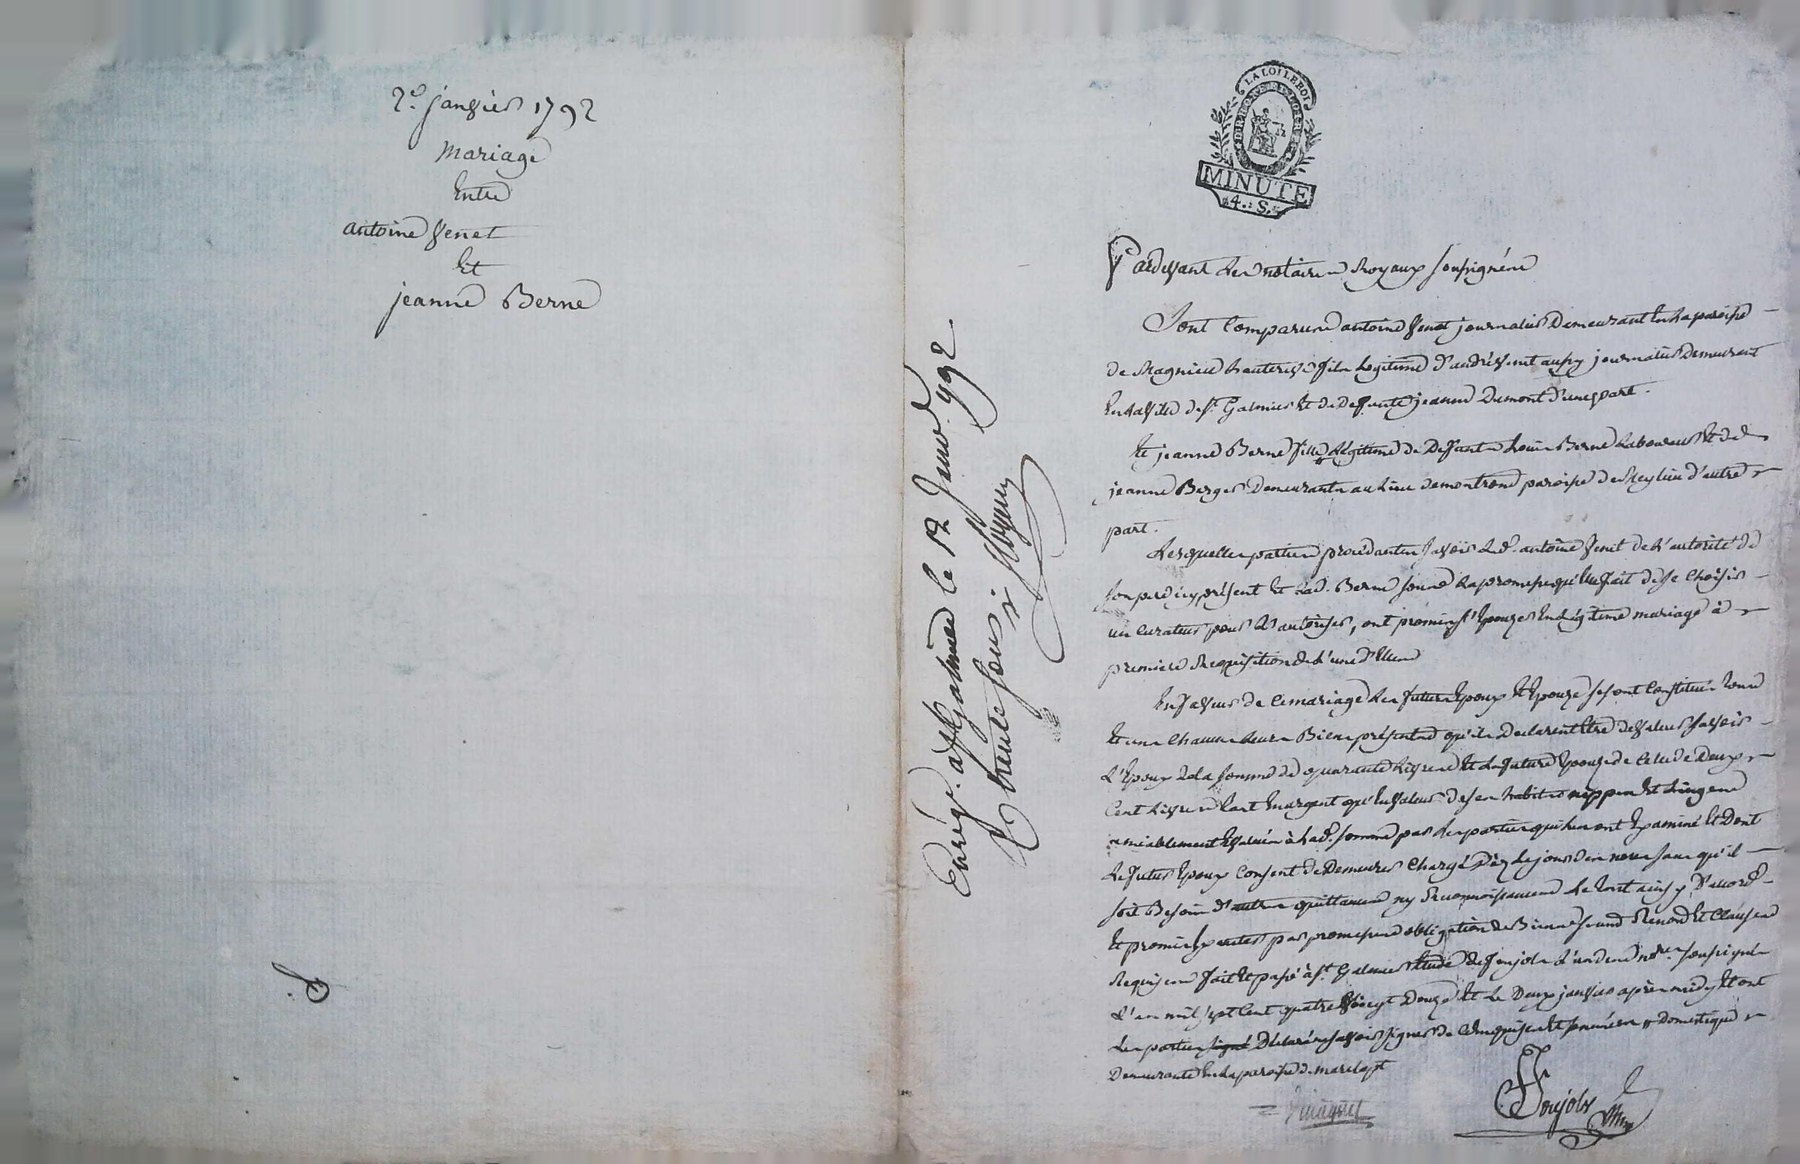 2e janvier 1792
mariage
Entre
antoine Venet
Et
jeanne Berne
Enrég. a St Galmier le 12 Janv. 1792
trente sous
LA LOI LE ROI
MINUTE
4. S.
Pardevant Les notaires Royaux soussignés
Sont Comparus antoine Venet journalier Demeurant En La paroisse
de Magnieu hauterive fils Legitime d'andré Venet aussy journalier Demeurant
En La ville de St Galmier Et de Defunte jeanne Dumont d'une part.
Et jeanne Berne fille Légitime de Deffunt Louis Berne Laboureur Et de
jeanne Berger Demeurante au Lieu de montrond paroisse de Meylieu d'autre
part.
Lesquelles parties procédantes savoir Led. antoine Venet de L'autorité de
son pere icy présent Et Lad. Berne sous La promesse qu'Elle fait de se Choisir
un Curateur pour L'autoriser, ont promis s'Epouser En Légitime mariage à
premiere Requisition de L'une d'Elles
En faveur de Ce mariage Les futurs Epoux Et Epouse se sont Constitués tous
Et un Chacun Leurs Biens présents qu'ils Declarent Etre de Valeur savoir
L'Epoux de La somme de quarante Livres Et La future Epouse de Celle de Deux
Cent Livres tant En argent qu'En Valeur de ses habits nippes Et Linges
amiablement Evalués à Lad. somme par Les parties qui Les ont Examiné Et Dont
Le futur Epoux Consent de Demeurer Chargé Dès Le jour des noces sans qu'il
soit Besoin d'autres quittances ny Reconnoissances Le tout ainsy D'accord
Et promis Executer par promesses obligation de Biens Renond Et Clauses
Requises fait Et passé à St Galmier Etude de Foujols L'un des nores soussignés
L'an mil sept Cent quatre Vingt Douze Et Le Deux janvier après midy Et ont
Les parties signé Déclaré ne savoir signer de Ce Enquises Et domestique
Demeurante En La paroisse de marclopt
Foujols